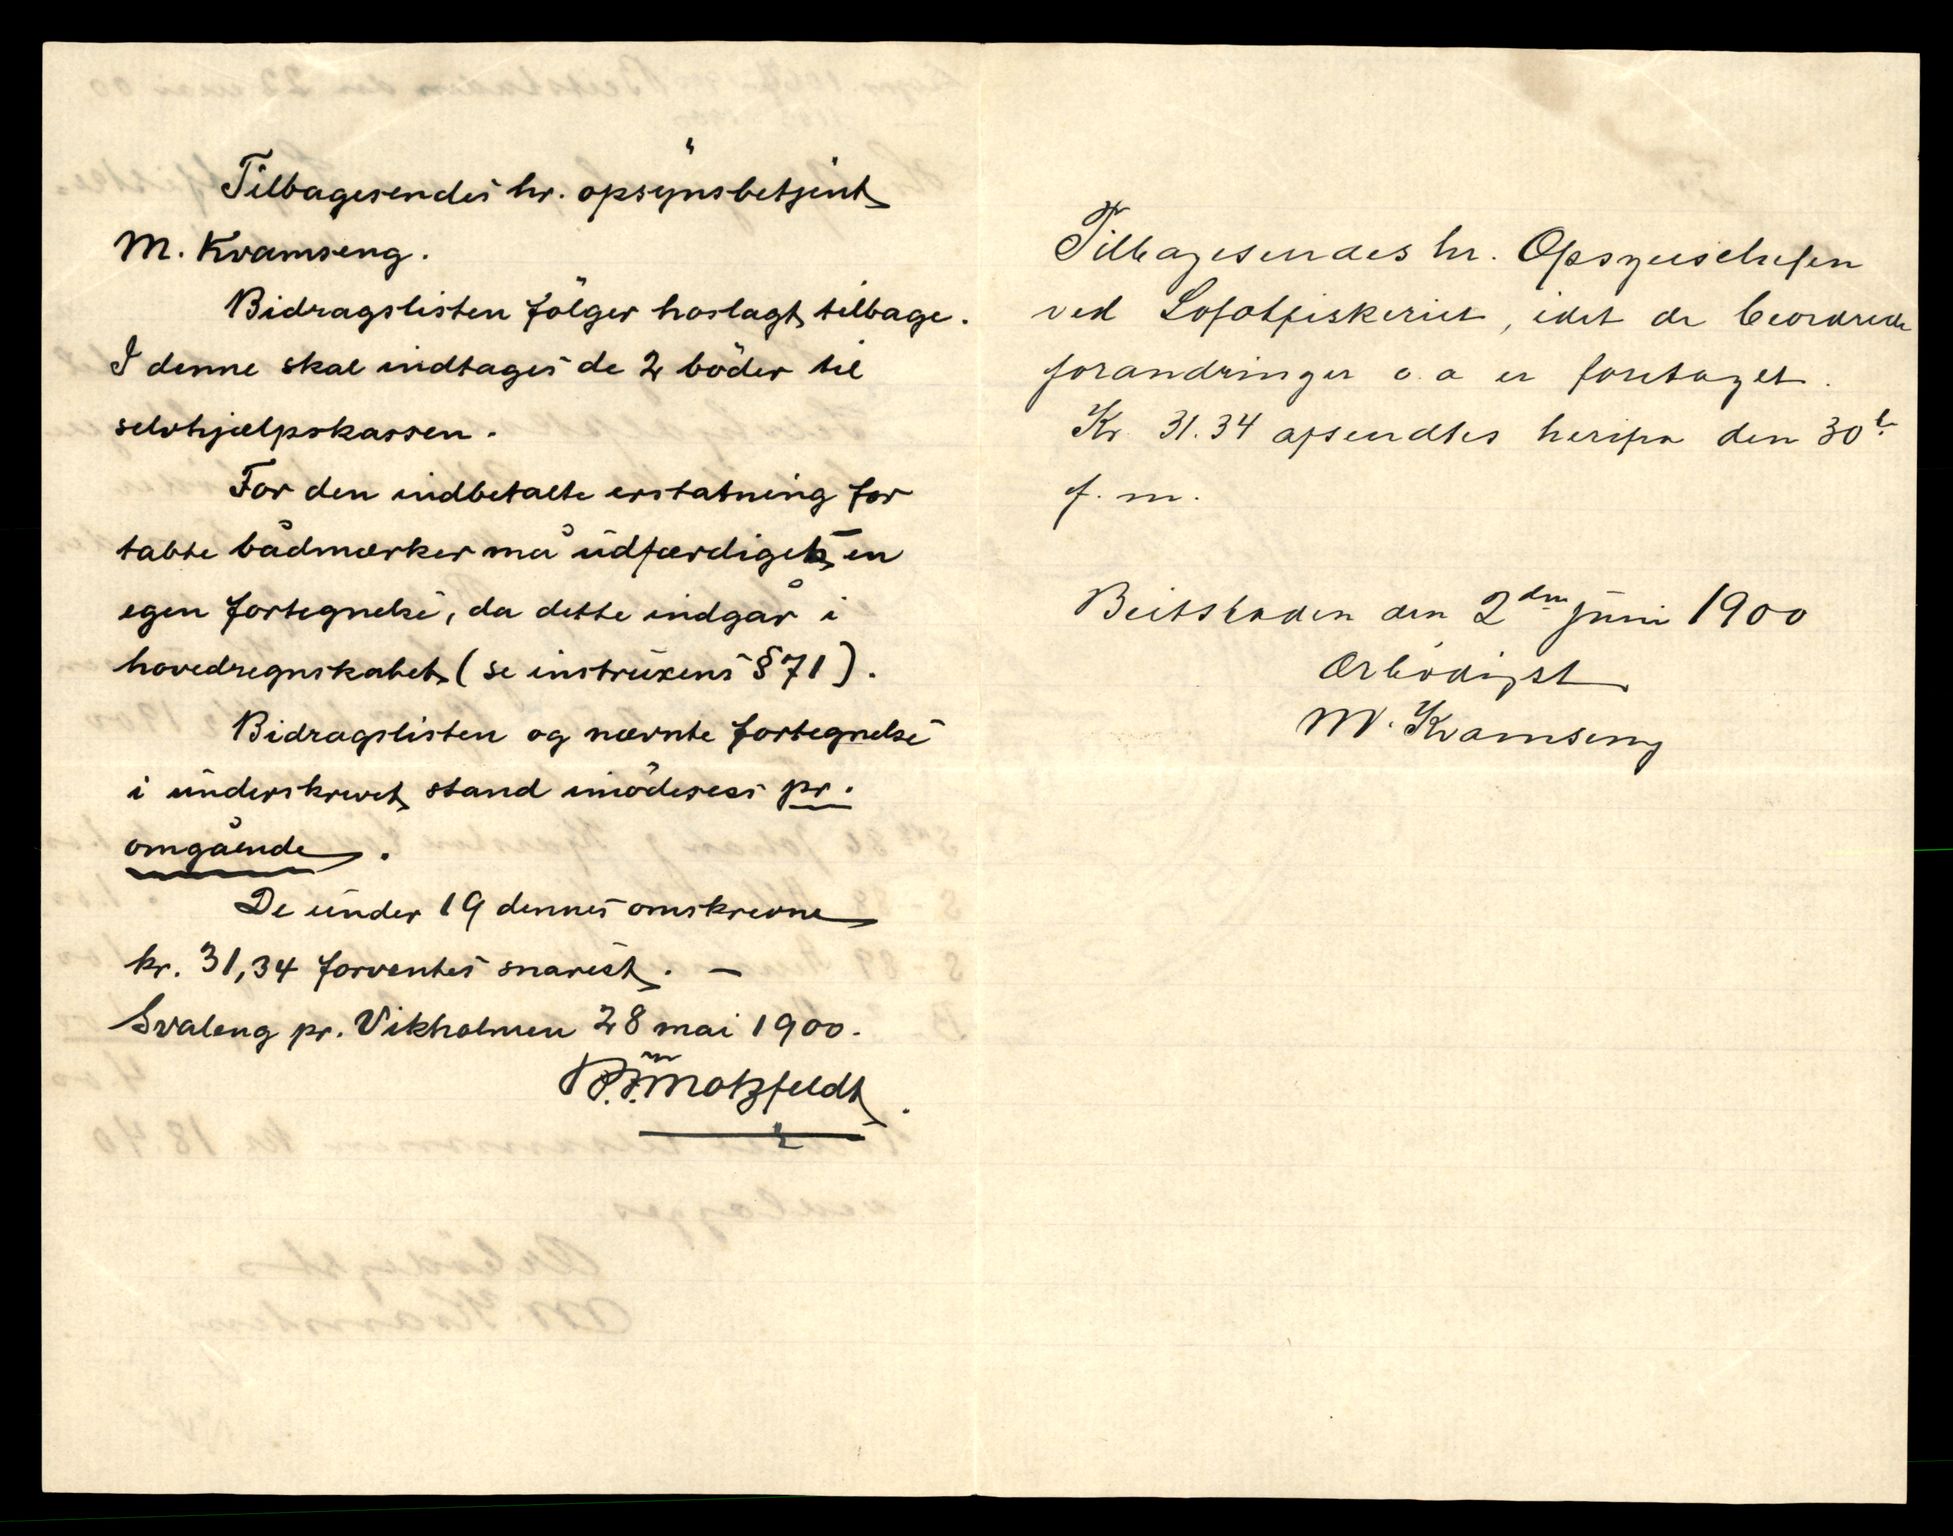 Tilbagesendes hr. opsynsbetjent
M. Kvamseng.
Bidragslisten følger hoslagt tilbage.
I denne skal indtages de 2 bøder til
selvhjælpskassen.
For den indbetalte erstatning for
tabte bådmærker må udfærdiges en
egen fortegnelse, da dette indgår i
hovedregnskabet (se instruxens § 71).
Bidragslisten og nævnte fortegnelse
i underskrevet stand imødesees pr.
omgående.
De under 19 dennes omskrevne
kr. 31,34 forventes snarest. —
Svaleng pr. Vikholmen 28 mai 1900.
Motzfeldt.
Tilbagesendes hr. Opsynschefen
ved Lofotfiskeriet, idet de beordrede
forandringer o. a er foretaget.
Kr 31.34 afsendtes herifra den 30
f. m.
Beitstaden den 2den juni 1900
Ærbødigst
M. Kvamseng